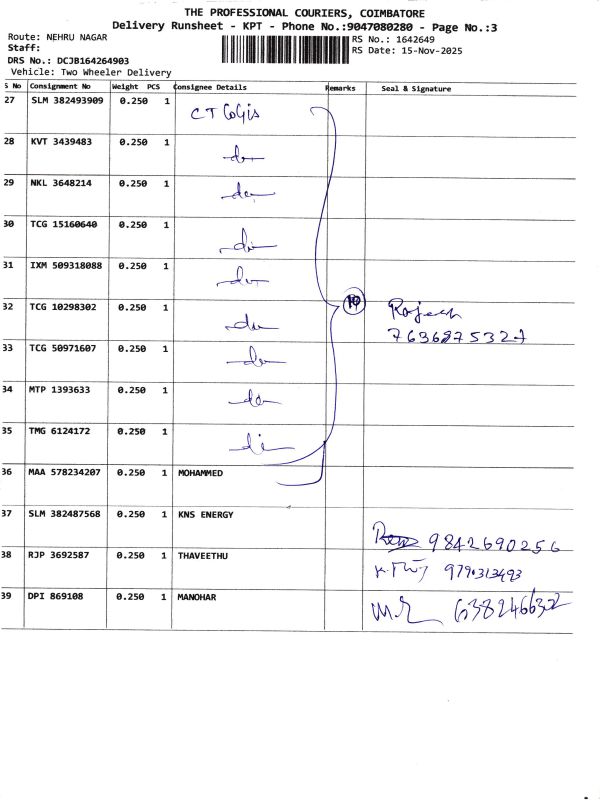 THE PROFESSIONAL COURIERS, COIMBATORE
Delivery Runsheet - KPT - Phone No.:9047080280 - Page No.:3
Route: NEHRU NAGAR RS No.: 1642649
Staff: RS Date: 15-Nov-2025
DRS No.: DCJB164264903
Vehicle: Two Wheeler Delivery
S No Consignment No Weight PCS Consignee Details Remarks Seal & Signature
27 SLM 382493909 0.250 1 CT
28 KVT 3439483 0.250 1 do
29 NKL 3648214 0.250 1 do
30 TCG 15160640 0.250 1 do
31 IXM 509318088 0.250 1 do
32 TCG 10298302 0.250 1 do 10 Rajesh
7636875327
33 TCG 50971607 0.250 1 do
34 MTP 1393633 0.250 1 do
35 TMG 6124172 0.250 1 do
36 MAA 578234207 0.250 1 MOHAMMED
37 SLM 382487568 0.250 1 KNS ENERGY 9842690256
38 RJP 3692587 0.250 1 THAVEETHU
39 DPI 869108 0.250 1 MANOHAR